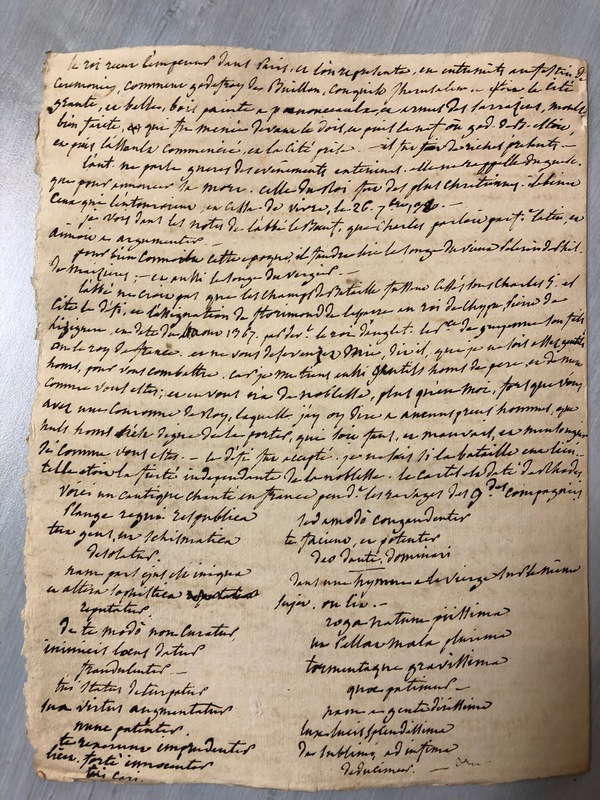 le roi recut l'empereur dans Paris, et l'on représenta, en entremets au festin de
ceremonie, comment godefroy de Buillon, conquist Jherusalem. - fu la cité
grante, et belle, bois painte a panonceaulx, et armes des sarrasins, moult
bien faite, qui fu menée devant le dois, et puis la nef ou god. de B. estoit,
et puis l'assault commencié, et la cité prise. - il fu fit de riches présents. -
l'aut. ne parle gueres des evenements
que pour annoncer sa mort. celle du Roi fut des plus chretiennes. il benit
ceux qui l'entouroient, et cessa de vivre, le 26. 7bre
je vois dans les notes de l'abbé le Beuf, que Charles parloit parft. latin, et
aimoit a argumenter. -
pour bien connoitre cette epoque, il faudra lire le songe du vieux Pelerin de Phil.
de Maizieres; - et aussi le songe du vergier. -
l'abbé ne croit pas que les champs de bataille fussent cessés sous Charles 5. et
cite le défi, et l'assignation de florimond de lesparre au roi de chypre, sire de
en date du 4 aout 1367. par devt. le roi d'anglet. le Pce de guyenne son fils
ou le roy de france. et ne vous defendez mie, dit-il, que je ne sois assez gentils
homs, pour vous combattre. car je me tiens aussi gentils homs de pere, et de mere
comme vous estes; et en vous n'a de noblesse, plus qu'en moi, fors que vous
avez une couronne de Roy, laquelle jay oy dire a aucuns preus hommes, que
nuls homs n'est digne de la porter, qui soit faus, et mauvais, et mensonger
si comme vous estes. - le défi fut accepté. je ne sais si la bataille eut lieu.
telle etoit la fierté independante de la noblesse. le cartel est daté de Rhodes.
Voici un cantique chanté en france pendt. les ravages des gdes compagnies
Plange regni respublica
tua gens, ut schismatica
desolatur.
nam pars ejus est iniqua
et altera sophistica
reputatur.
de te modò non curatur,
inimicis locus datur
fraudulenter -
tui status deturpatur
sua virtus augmentatur
nunc patenter.
te rexerunt imprudenter
licet forte innocenter
tui cari.
sed amodò congaudenter
te facient, et potenter
deo dante, dominari
dans une hymne a la vierge sur le même
sujet. on lit. -
roga natum piissima
ut pellat mala plurima
tormentaque gravissima
quae patimur -
nam a gente dirissima
lux lucis splendissima
de sublimi, ad infima
deducimur. -